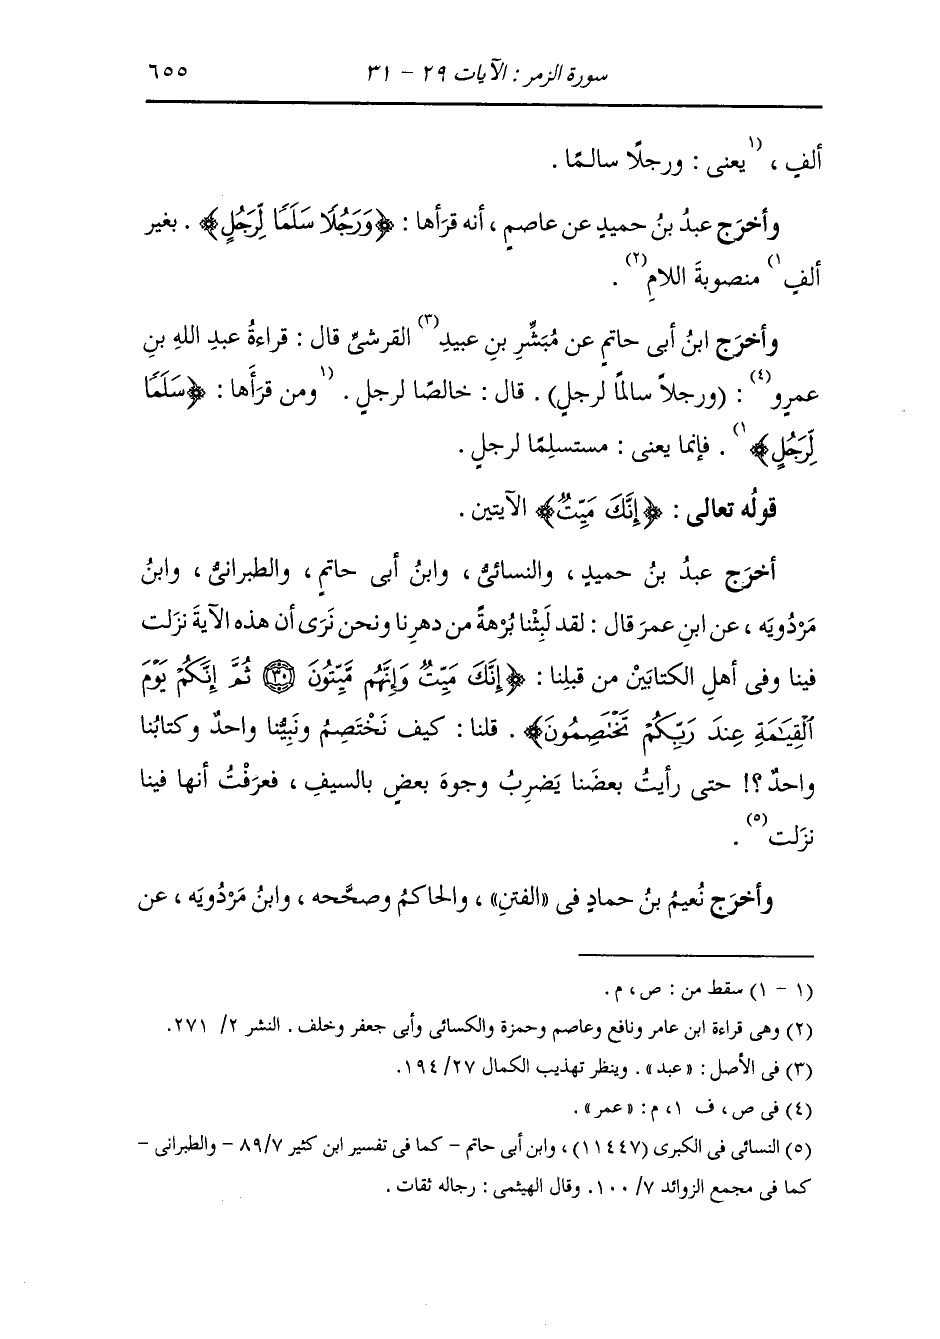 سورة الزمر : الآيات ٢٩ - ٣١ ٦٥٥
ألفٍ ، (١يعنى : ورجلًا سالـمًا .
وأخرَج عبدُ بنُ حميدٍ عن عاصمٍ ، أنه قرَأها : ﴿وَرَجُلًا سَلَمًا لِّرَجُلٍ﴾ . بغير
ألفٍ ١) منصوبةَ اللامِ (٢) .
وأخرَج ابنُ أبى حاتمٍ عن مُبَشِّرِ بنِ عبيدٍ (٣) القرشىِّ قال : قراءةُ عبدِ اللهِ بنِ
عمرٍو (٤) : (ورجلاً سالمًا لرجلٍ) . قال : خالصًا لرجلٍ . (١ومن قرَأَها : ﴿سَلَمًا
لِّرَجُلٍ﴾ ١) . فإنما يعنى : مستسلِمًا لرجلٍ .
قولُه تعالى : ﴿إِنَّكَ مَيِّتٌ﴾ الآيتين .
أخرَج عبدُ بنُ حميدٍ ، والنسائىُّ ، وابنُ أبى حاتمٍ ، والطبرانىُّ ، وابنُ
مَرْدُويَه ، عن ابنِ عمرَ قال : لقد لَبِثْنا بُرْهةً من دهرِنا ونحن نَرَى أن هذه الآيةَ نزَلت
فينا وفى أهلِ الكتابَيْنِ من قبلِنا : ﴿إِنَّكَ مَيِّتٌ وَإِنَّهُم مَّيِّتُونَ ﴿٣٠﴾ ثُمَّ إِنَّكُمْ يَوْمَ
ٱلْقِيَـٰمَةِ عِندَ رَبِّكُمْ تَخْتَصِمُونَ﴾ . قلنا : كيف نَخْتَصِمُ ونَبِيُّنا واحدٌ وكتابُنا
واحدٌ ؟! حتى رأيتُ بعضَنا يَضرِبُ وجوهَ بعضٍ بالسيفِ ، فعرَفْتُ أنها فينا
نزَلت (٥) .
وأخرَج نُعيمُ بنُ حمادٍ فى «الفتنِ» ، والحاكمُ وصحَّحه ، وابنُ مَرْدُويَه ، عن
(١ - ١) سقط من : ص ، م .
(٢) وهى قراءة ابن عامر ونافع وعاصم وحمزة والكسائى وأبى جعفر وخلف . النشر ٢/ ٢٧١.
(٣) فى الأصل : «عبد» . وينظر تهذيب الكمال ٢٧/ ١٩٤.
(٤) فى ص ، ف ١، م : «عمر» .
(٥) النسائى فى الكبرى (١١٤٤٧) ، وابن أبى حاتم - كما فى تفسير ابن كثير ٨٩/٧ - والطبرانى -
كما فى مجمع الزوائد ٧/ ١٠٠. وقال الهيثمى : رجاله ثقات .